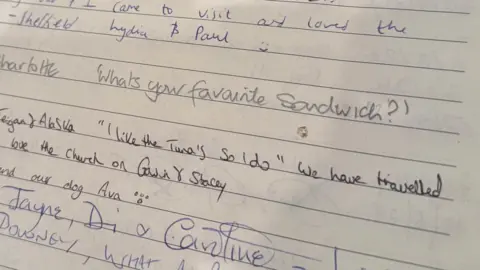 I came to visit and loved the
- Sheffield Lydia & Paul
Charlotte Whats your favourite Sandwich?!
"I like the Tuna's so I do" We have travelled
the Church on Gavin & Stacey
and our dog Ava
Jayne, Di & Caroline